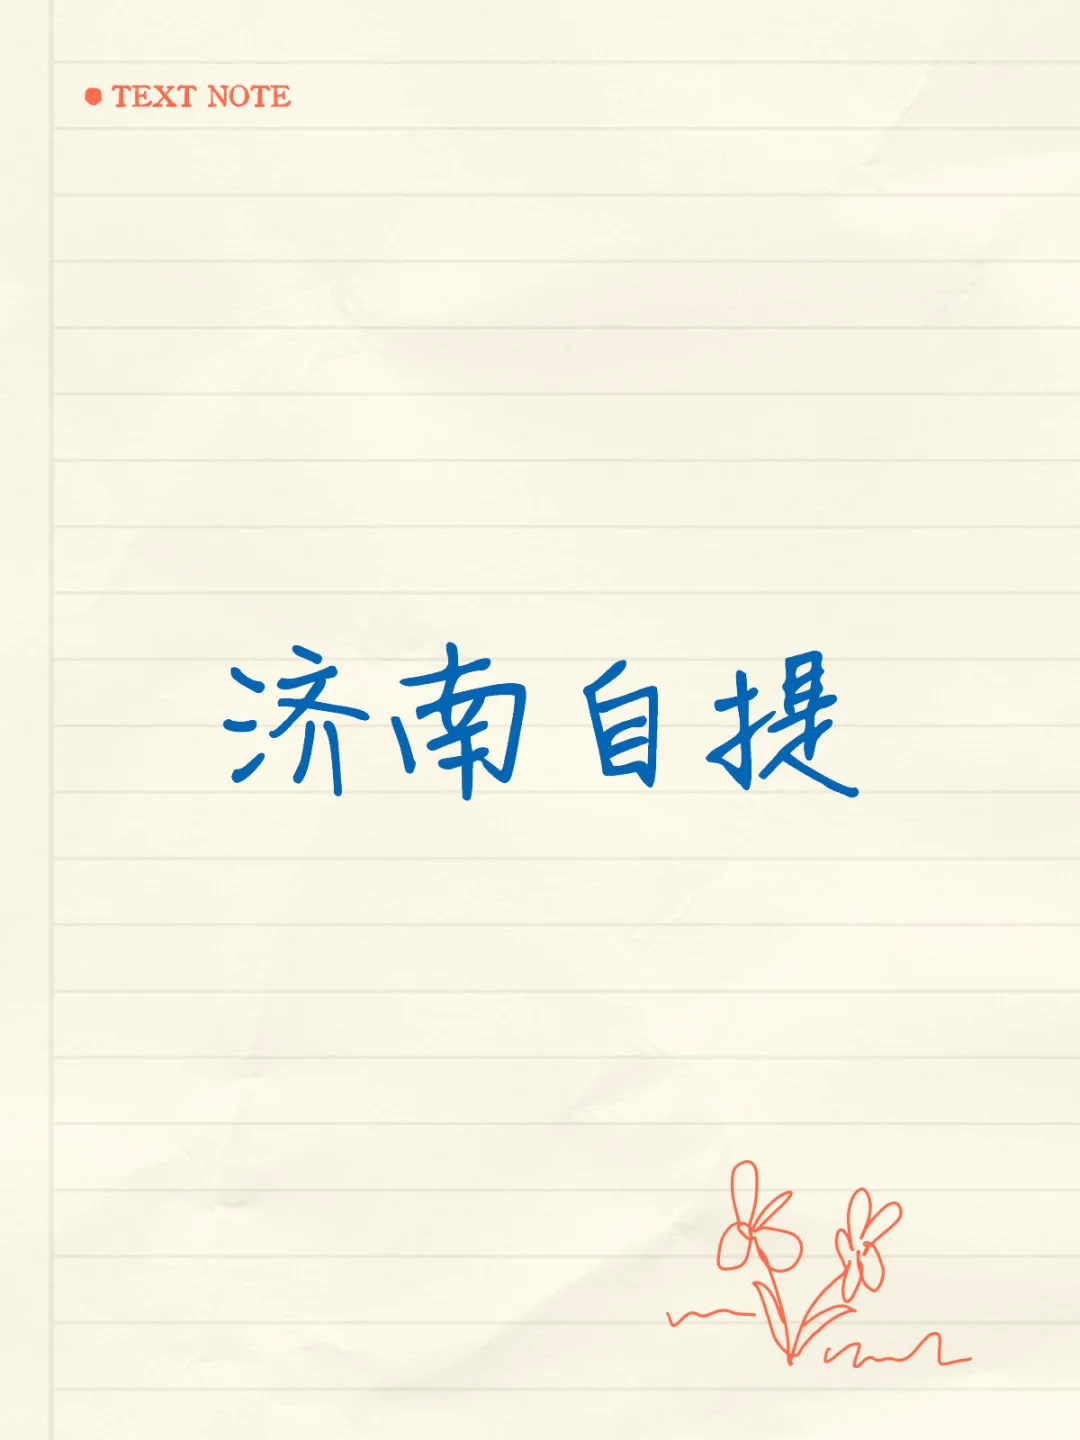 TEXT NOTE
济南自提